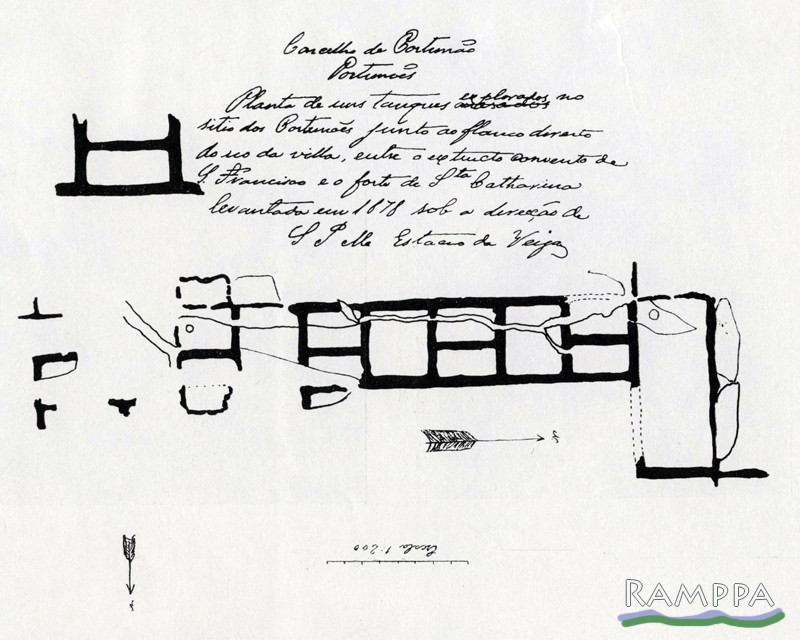 Concelho de Portimão
Portimões
Planta de uns tanques explorados no
sitio dos Portimões junto ao flanco direito
do rio da villa, entre o extincto convento de
S. Francisco e o forte de Sta Catharina
levantada em 1878 sob a direcção de
S P M Estacio da Veiga
Escala 1:200
RAMPPA